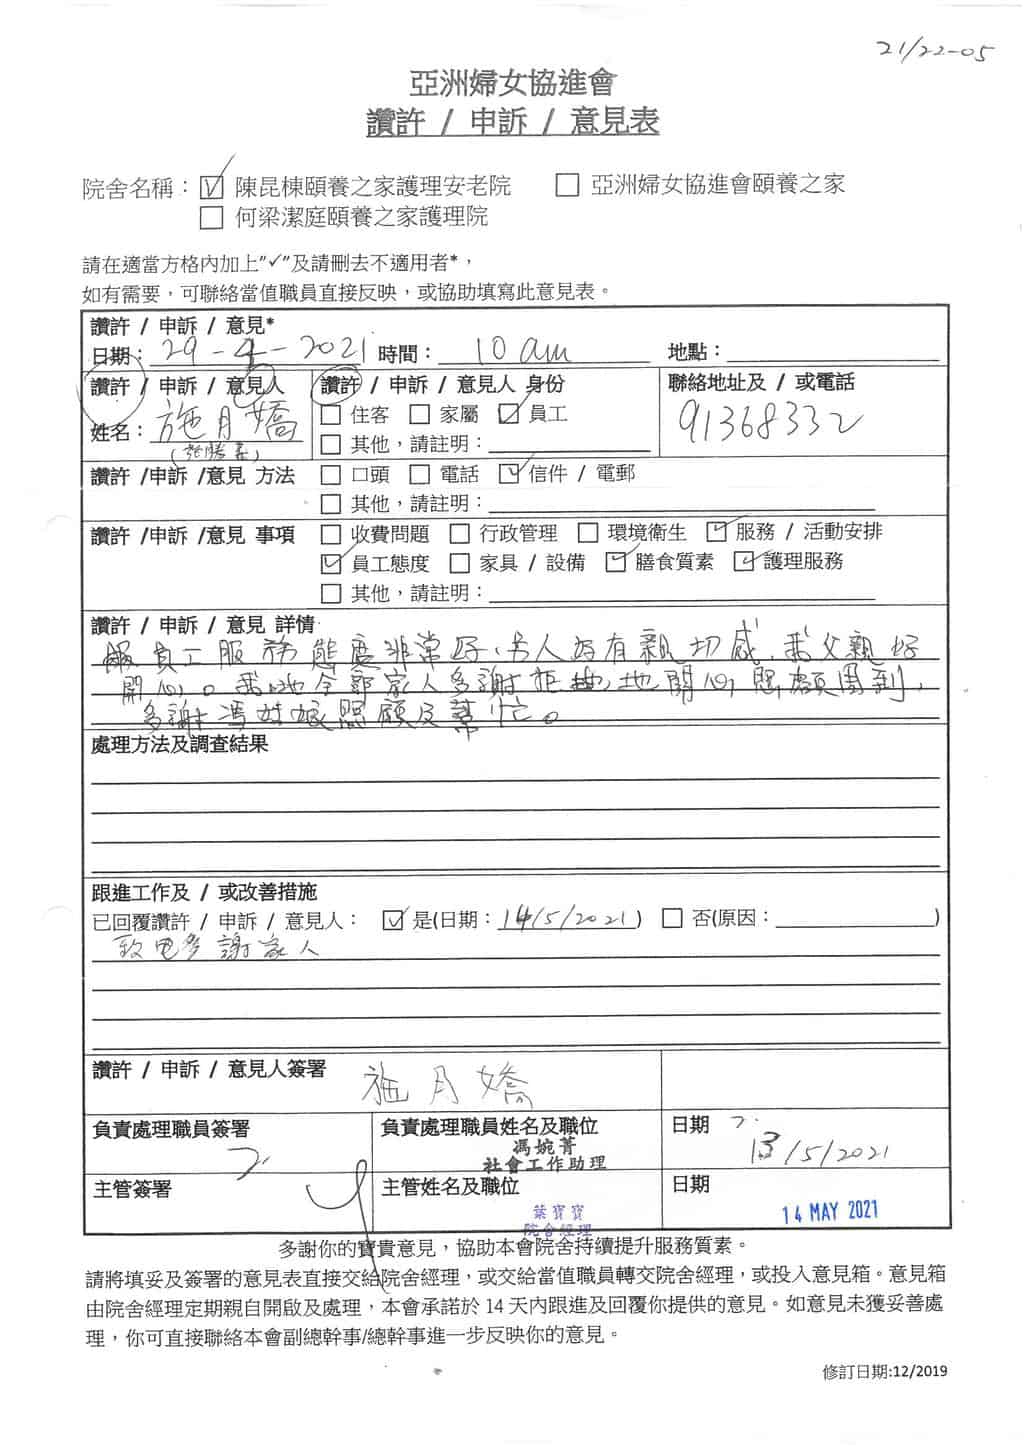 21/22-05
亞洲婦女協進會
讚許 / 申訴 / 意見表
院舍名稱：☑ 陳昆棟頤養之家護理安老院 ☐ 亞洲婦女協進會頤養之家
☐ 何梁潔庭頤養之家護理院
請在適當方格內加上"✓"及請刪去不適用者*，
如有需要，可聯絡當值職員直接反映，或協助填寫此意見表。
讚許 / 申訴 / 意見*
日期：29-4-2021 時間：10 am 地點：
讚許 / 申訴 / 意見人
姓名：施月嬌
讚許 / 申訴 / 意見人 身份
☐ 住客 ☐ 家屬 ☑ 員工
☐ 其他，請註明：
聯絡地址及 / 或電話
91368332
讚許 /申訴 /意見 方法 ☐ 口頭 ☐ 電話 ☑ 信件 / 電郵
☐ 其他，請註明：
讚許 /申訴 /意見 事項 ☐ 收費問題 ☐ 行政管理 ☐ 環境衛生 ☑ 服務 / 活動安排
☑ 員工態度 ☐ 家具 / 設備 ☑ 膳食質素 ☑ 護理服務
☐ 其他，請註明：
讚許 / 申訴 / 意見 詳情
員工服務態度非常好，令人好有親切感，我父親好
開心。我哋全部家人多謝 地開心，照顧周到，
多謝馮姑娘照顧及幫忙。
處理方法及調查結果
跟進工作及 / 或改善措施
已回覆讚許 / 申訴 / 意見人： ☑ 是(日期：14/5/2021) ☐ 否(原因： )
致電多謝家人
讚許 / 申訴 / 意見人簽署 施月嬌
負責處理職員簽署 負責處理職員姓名及職位 日期
馮婉菁
社會工作助理
13/5/2021
主管簽署 主管姓名及職位 日期
葉寶寶
院舍經理
14 MAY 2021
多謝你的寶貴意見，協助本會院舍持續提升服務質素。
請將填妥及簽署的意見表直接交給院舍經理，或交給當值職員轉交院舍經理，或投入意見箱。意見箱
由院舍經理定期親自開啟及處理，本會承諾於 14 天內跟進及回覆你提供的意見。如意見未獲妥善處
理，你可直接聯絡本會副總幹事/總幹事進一步反映你的意見。
修訂日期:12/2019